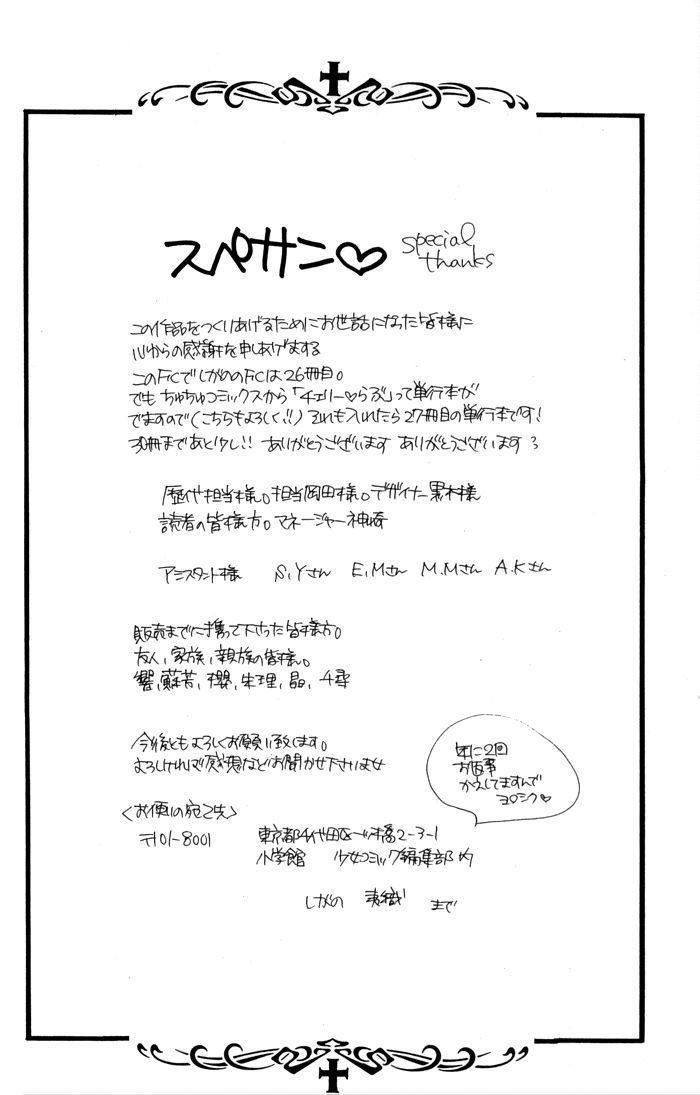 スペサン♡
special
thanks
この作品をつくりあげるためにお世話になった皆様に
心からの感謝を申しあげまする
このFCでしがののFCは26冊目。
でも ちゅちゅコミックスから「チェリー♡らぶ」って単行本が
でますので(こちらもよろしく!!)それも入れたら27冊目の単行本です!
30冊まであと少し!! ありがとうございます ありがとうございます
歴代担当様。担当岡田様。デザイナー黒木様
読者の皆様方。マネージャー神崎
アシスタント様 S.Yさん E.Mさん M.Mさん A.Kさん
販売までに携って下さった皆様方。
友人、家族、親族の皆様。
響、蘇芳、櫻、朱理、晶、千尋
今後ともよろしくお願い致します。
よろしければ感想などお聞かせ下さいませ
年に2回
お返事
かえしてますんで
ヨロシク♡
<お便りの宛て先>
〒101-8001 東京都千代田区一ツ橋2-3-1
小学館 少女コミック編集部内
しがの 夷織 まで